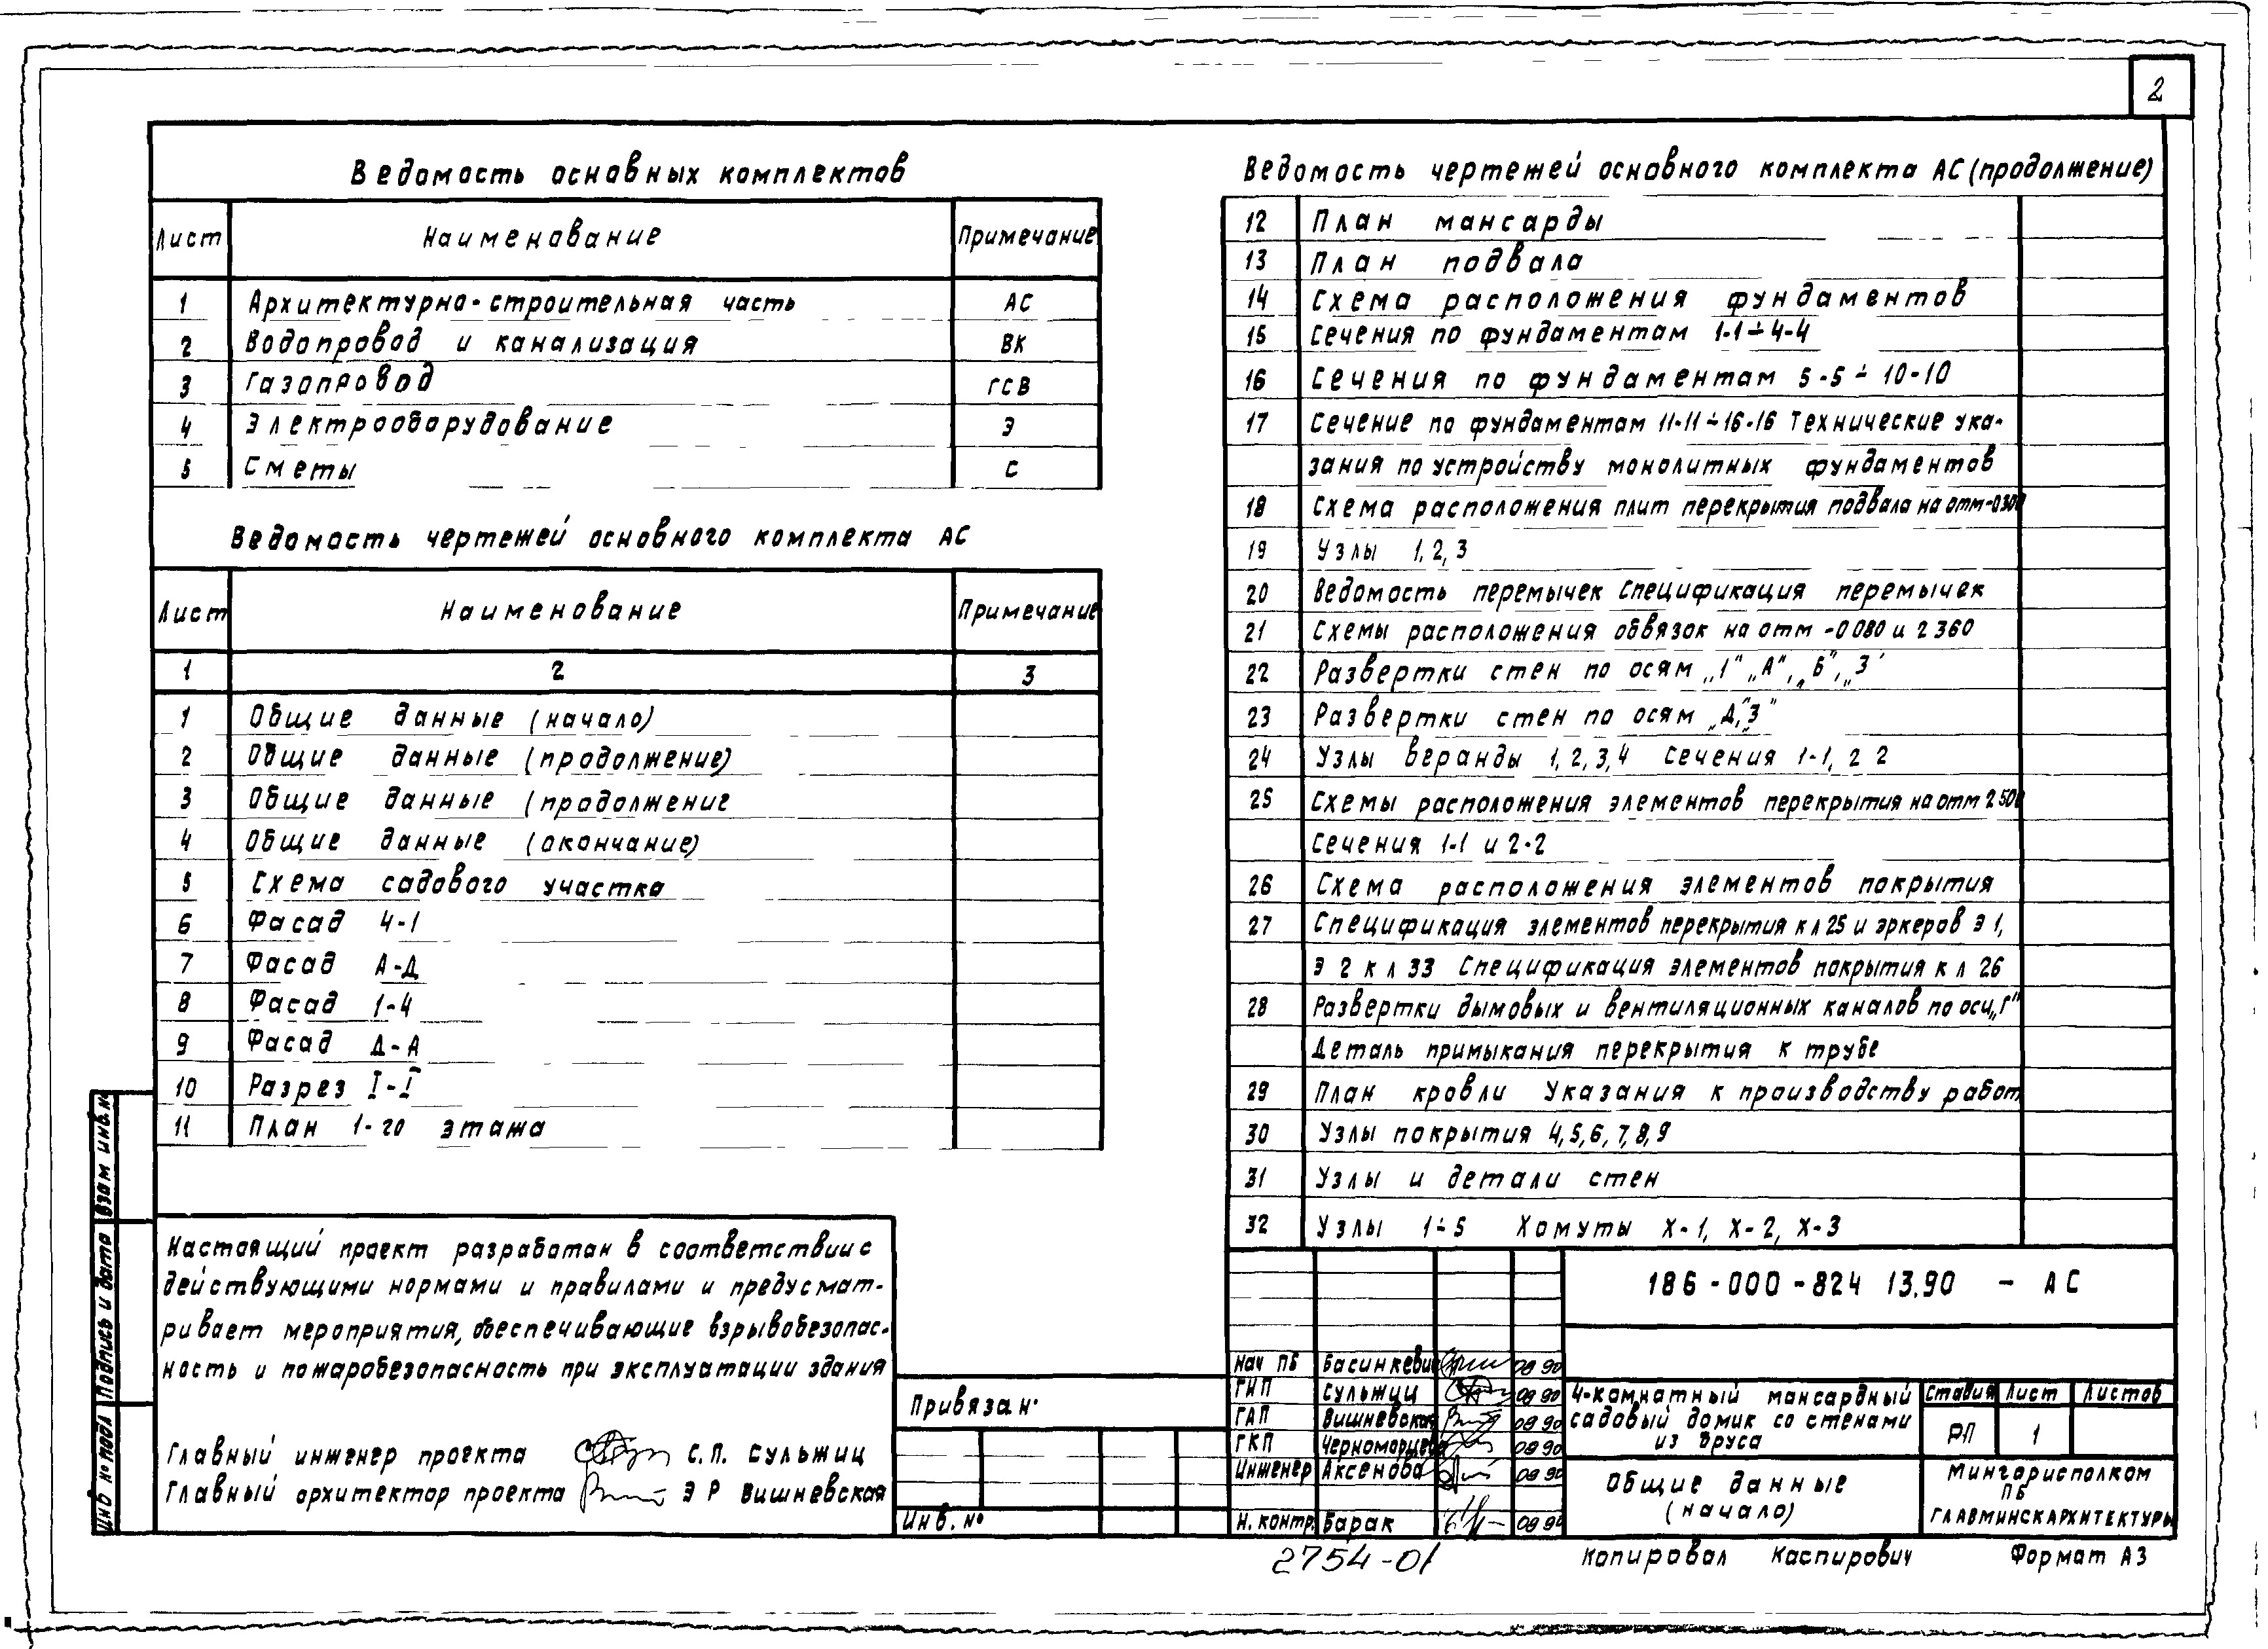 2
Ведомость основных комплектов
Лист Наименование Примечание
1 Архитектурно-строительная часть АС
2 Водопровод и канализация ВК
3 Газопровод ГСВ
4 Электрооборудование Э
5 Сметы С
Ведомость чертежей основного комплекта АС
Лист Наименование Примечание
1 2 3
1 Общие данные (начало)
2 Общие данные (продолжение)
3 Общие данные (продолжение
4 Общие данные (окончание)
5 Схема садового участка
6 Фасад 4-1
7 Фасад А-Д
8 Фасад 1-4
9 Фасад Д-А
10 Разрез I-I
11 План 1-го этажа
Ведомость чертежей основного комплекта АС (продолжение)
12 План мансарды
13 План подвала
14 Схема расположения фундаментов
15 Сечения по фундаментам 1-1÷4-4
16 Сечения по фундаментам 5-5÷10-10
17 Сечение по фундаментам 11-11÷16-16 Технические ука-
зания по устройству монолитных фундаментов
18 Схема расположения плит перекрытия подвала на отм-0300
19 Узлы 1,2,3
20 Ведомость перемычек Спецификация перемычек
21 Схемы расположения обвязок на отм -0 080 и 2 360
22 Развертки стен по осям „1" „А", „Б", „3'
23 Развертки стен по осям „Д", „3"
24 Узлы веранды 1,2,3,4 Сечения 1-1, 2 2
25 Схемы расположения элементов перекрытия на отм 2 500
Сечения 1-1 и 2-2
26 Схема расположения элементов покрытия
27 Спецификация элементов перекрытия к л 25 и эркеров Э 1,
Э 2 к л 33 Спецификация элементов покрытия к л 26
28 Развертки дымовых и вентиляционных каналов по оси „Г"
Деталь примыкания перекрытия к трубе
29 План кровли Указания к производству работ
30 Узлы покрытия 4,5,6,7,8,9
31 Узлы и детали стен
32 Узлы 1÷5 Хомуты Х-1, Х-2, Х-3
Настоящий проект разработан в соответствии с
действующими нормами и правилами и предусмат-
ривает мероприятия, обеспечивающие взрывобезопас-
ность и пожаробезопасность при эксплуатации здания
Главный инженер проекта С.П. Сульжиц
Главный архитектор проекта Э Р Вишневская
Привязан:
Инв. №
Взам инв. №
Подпись и дата
Инв № подл
186-000-824 13.90 - АС
Нач ПБ Басинкевич 09 90
ГИП Сульжиц 09 90
ГАП Вишневская 09 90
ГКП Черноморцева 09 90
Инженер Аксенова 09 90
Н. контр. Барак 09 90
4-комнатный мансардный
садовый домик со стенами
из бруса
Стадия Лист Листов
РП 1
Общие данные
(начало)
Мингорисполком
ПБ
ГЛАВМИНСКАРХИТЕКТУРЫ
2754-01
Копировал Каспирович Формат А3